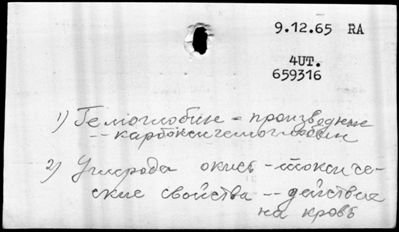 9.12.65 RA
4UT.
659316
1) Гемоглобин - производные
-- карбоксигемоглобин
2) Углерода окись - токсиче-
ские свойства -- действие
на кровь